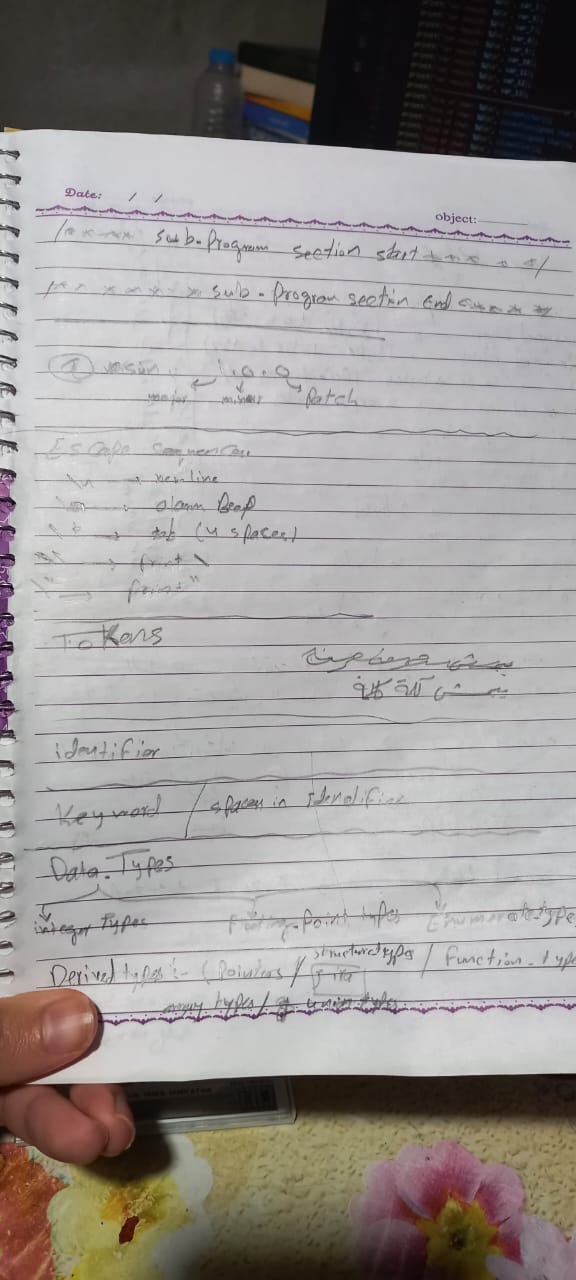 Date: / /
object:
/* * * * * sub-Program section start * * * * */
/* * * * * * sub-Program section End * * * * */
① 1.0.0
major minor Patch
Escape Sequences
\n → new line
→ alarm Beep
\t → tab (4 spaces)
→ print \
\" → print "
Tokens
identifier
Keyword / spaces in identifier
Data-Types
integer types Floating-Point types Enumerate types
structure types
Derived types :- (Pointers / / Function-type
array types / union types